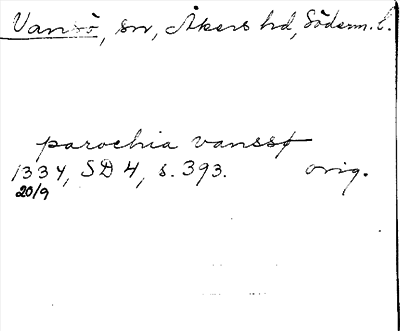 Vansö, sn, Åkers hd, Söderm. l.
parochia vanssø
1334, SD 4, s. 393. orig.
20/9